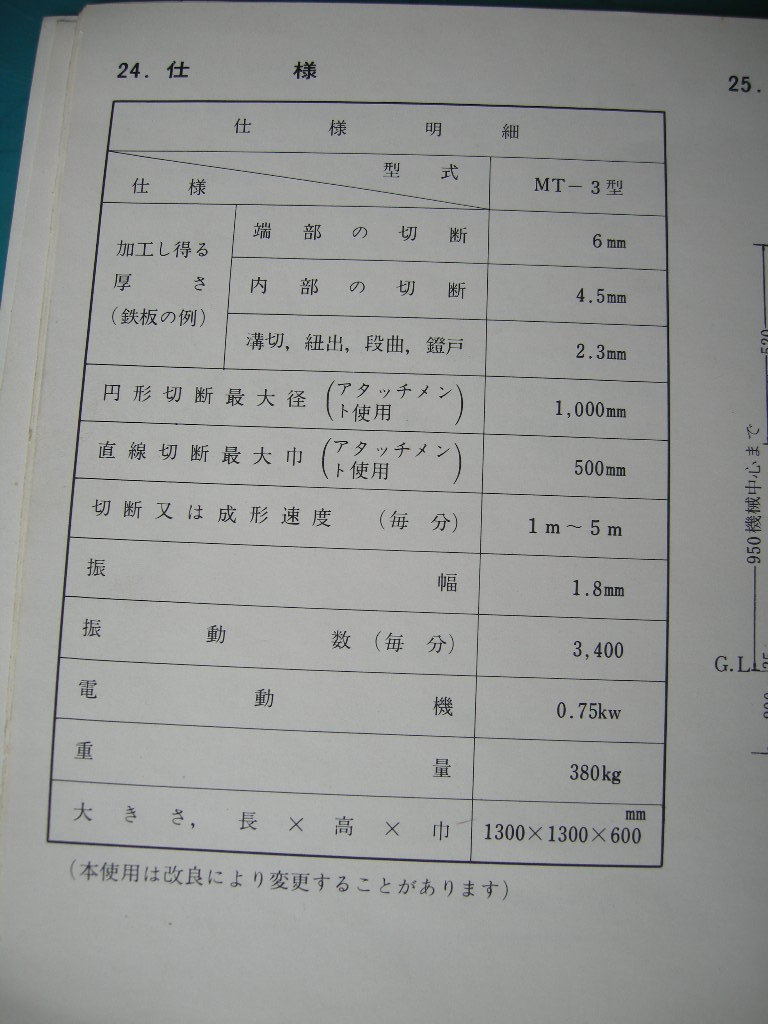 24. 仕 様
25.
仕 様 明 細
型 式
仕 様
MT－3型
加工し得る
厚 さ
（鉄板の例）
端 部 の 切 断
6mm
内 部 の 切 断
4.5mm
溝切，紐出，段曲，鐙戸
2.3mm
円形切断最大径（アタッチメン
ト使用）
1,000mm
直線切断最大巾（アタッチメン
ト使用）
500mm
切断又は成形速度 （毎 分）
1m～5m
振 幅
1.8mm
振 動 数（毎 分）
3,400
電 動 機
0.75kw
重 量
380kg
大きさ，長×高×巾
mm
1300×1300×600
（本使用は改良により変更することがあります）
520
950機械中心まで
G.L